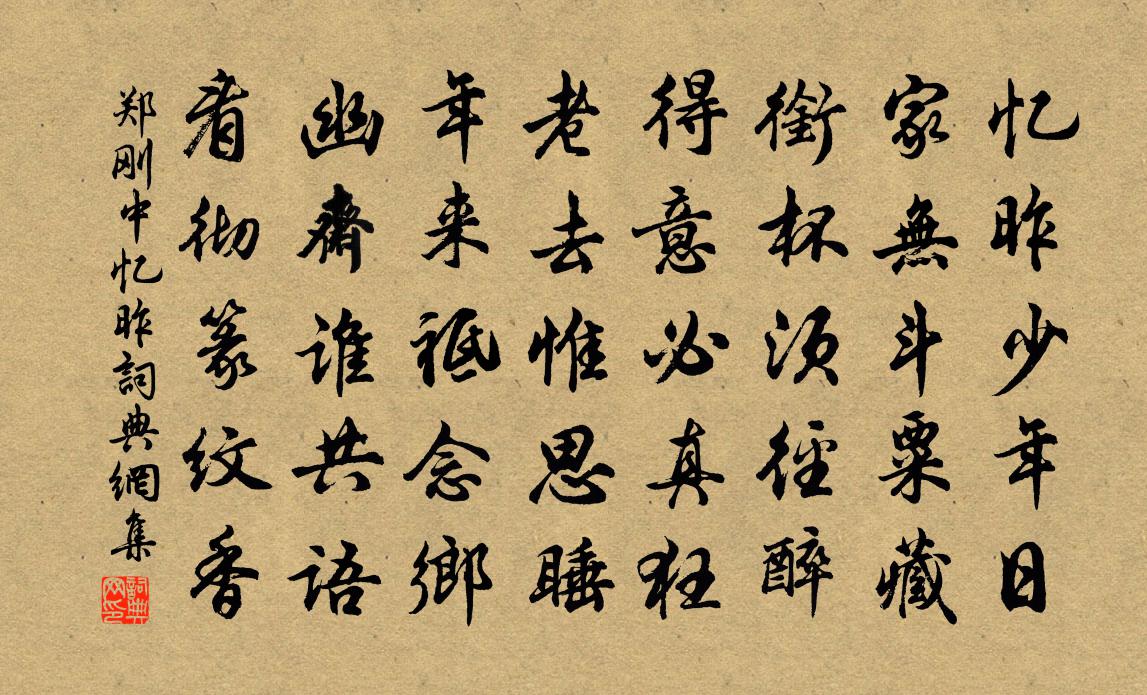 忆昨少年日
家無斗粟藏
銜杯须徑醉
得意必真狂
老去惟思睡
年来祗念鄉
幽齋谁共语
看彻篆纹香
郑刚中忆昨詞典網集
詞典网印